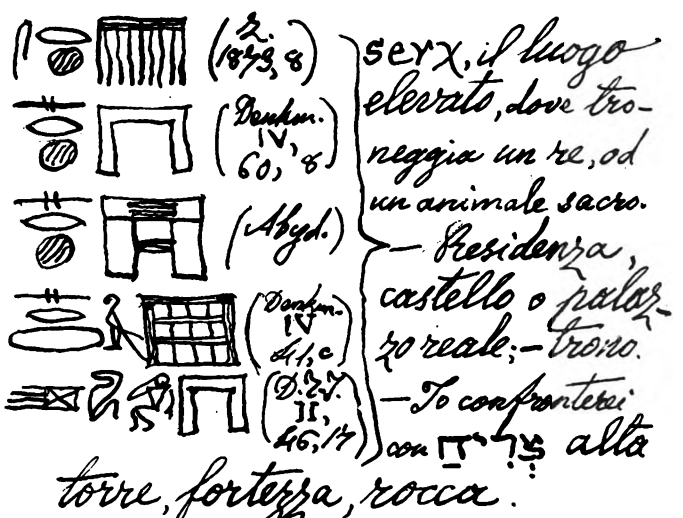 (Z.
1873, 8)
(Denkm.
IV,
60, 8)
(Abyd.)
(Denkm.
IV
41, c)
II,
46, 17)
serχ, il luogo
elevato, dove tro-
neggia un re, od
un animale sacro.
— Residenza,
castello o palaz-
zo reale; — trono.
— Io confronterei
con צְרִיחַ alta
torre, fortezza, rocca.